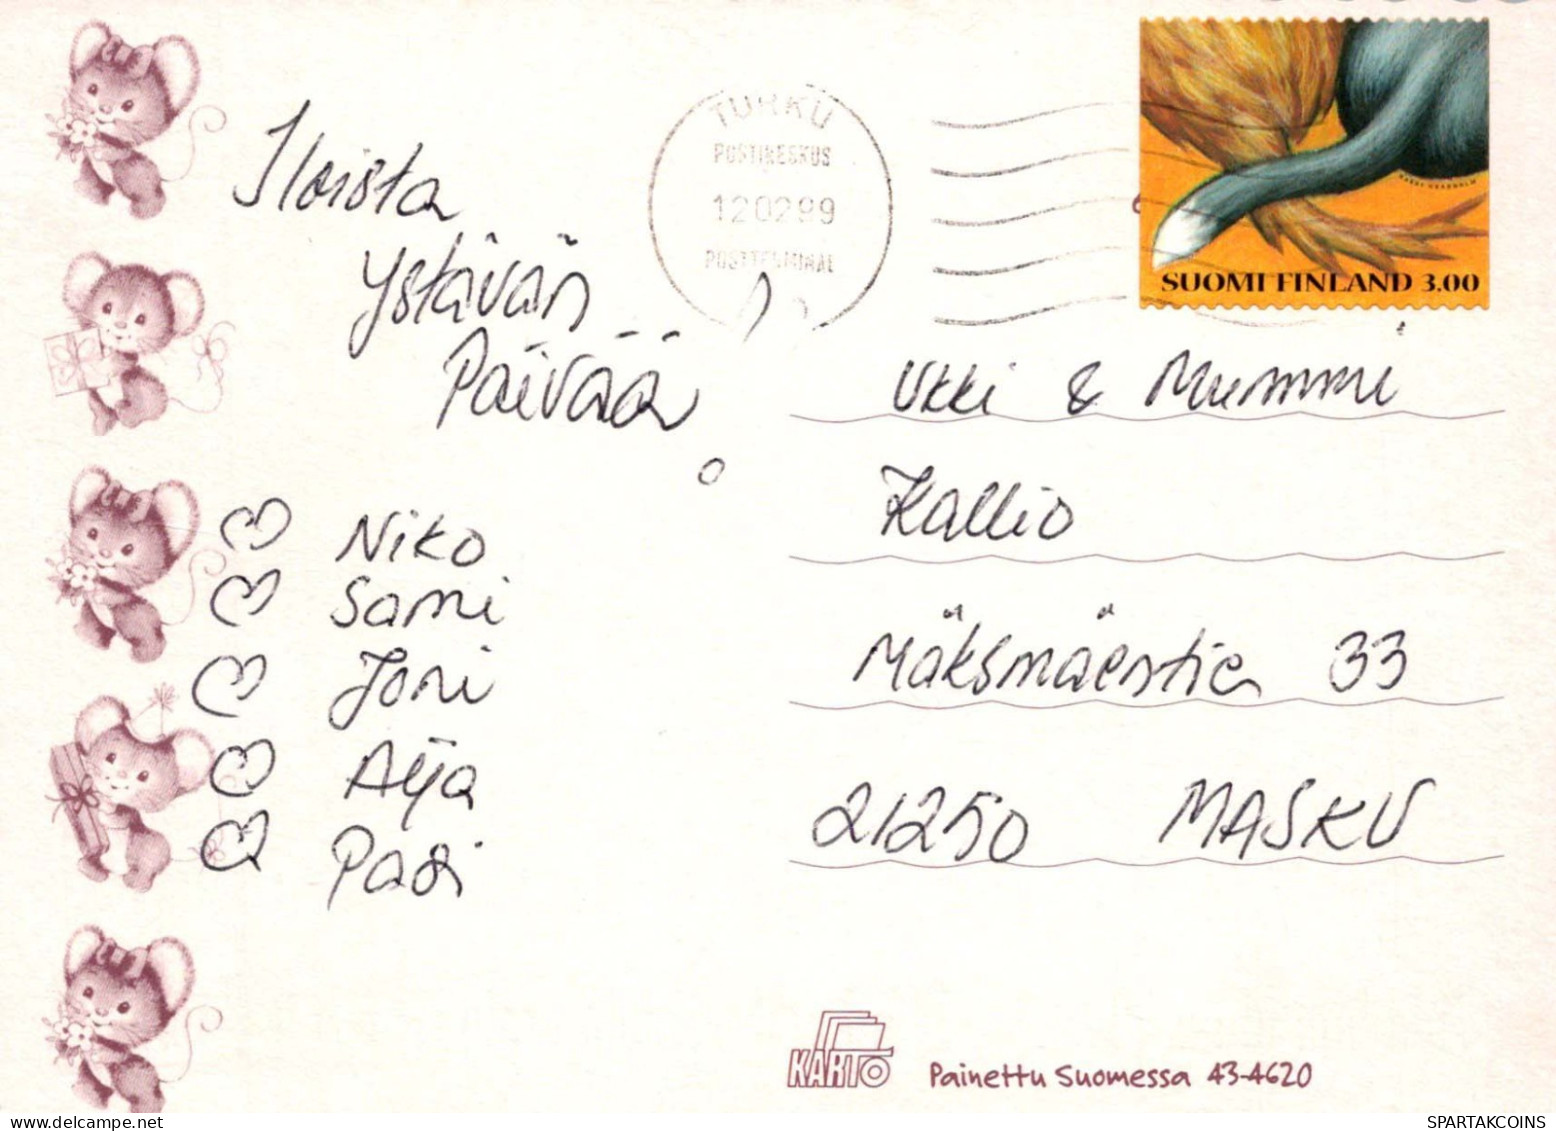 Iloista
Ystävän
Päivää
Niko
Sami
Joni
Aija
Pasi
TURKU
POSTIKESKUS
12.02.99
POSTTERMINAL
SUOMI FINLAND 3.00
Ukki & Mummi
Kallio
Mäksmäentie 33
21250 MASKU
KARTO
Painettu Suomessa 43-4620
SPARTAKCOINS